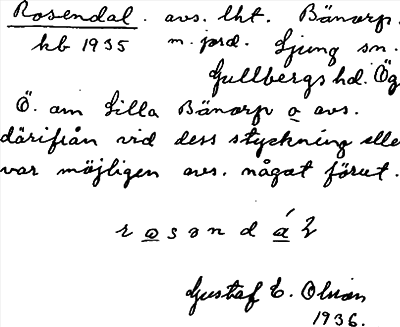 Rosendal. avs. lht. Bänorp.
kb 1935 m. jord. Ljung sn.
Gullbergs hd. Ög
Ö. om Lilla Bänorp o avs.
därifrån vid dess styckning elle
var möjligen avs. något förut.
r o s ə n d á l
Gustaf E. Olson
1936.